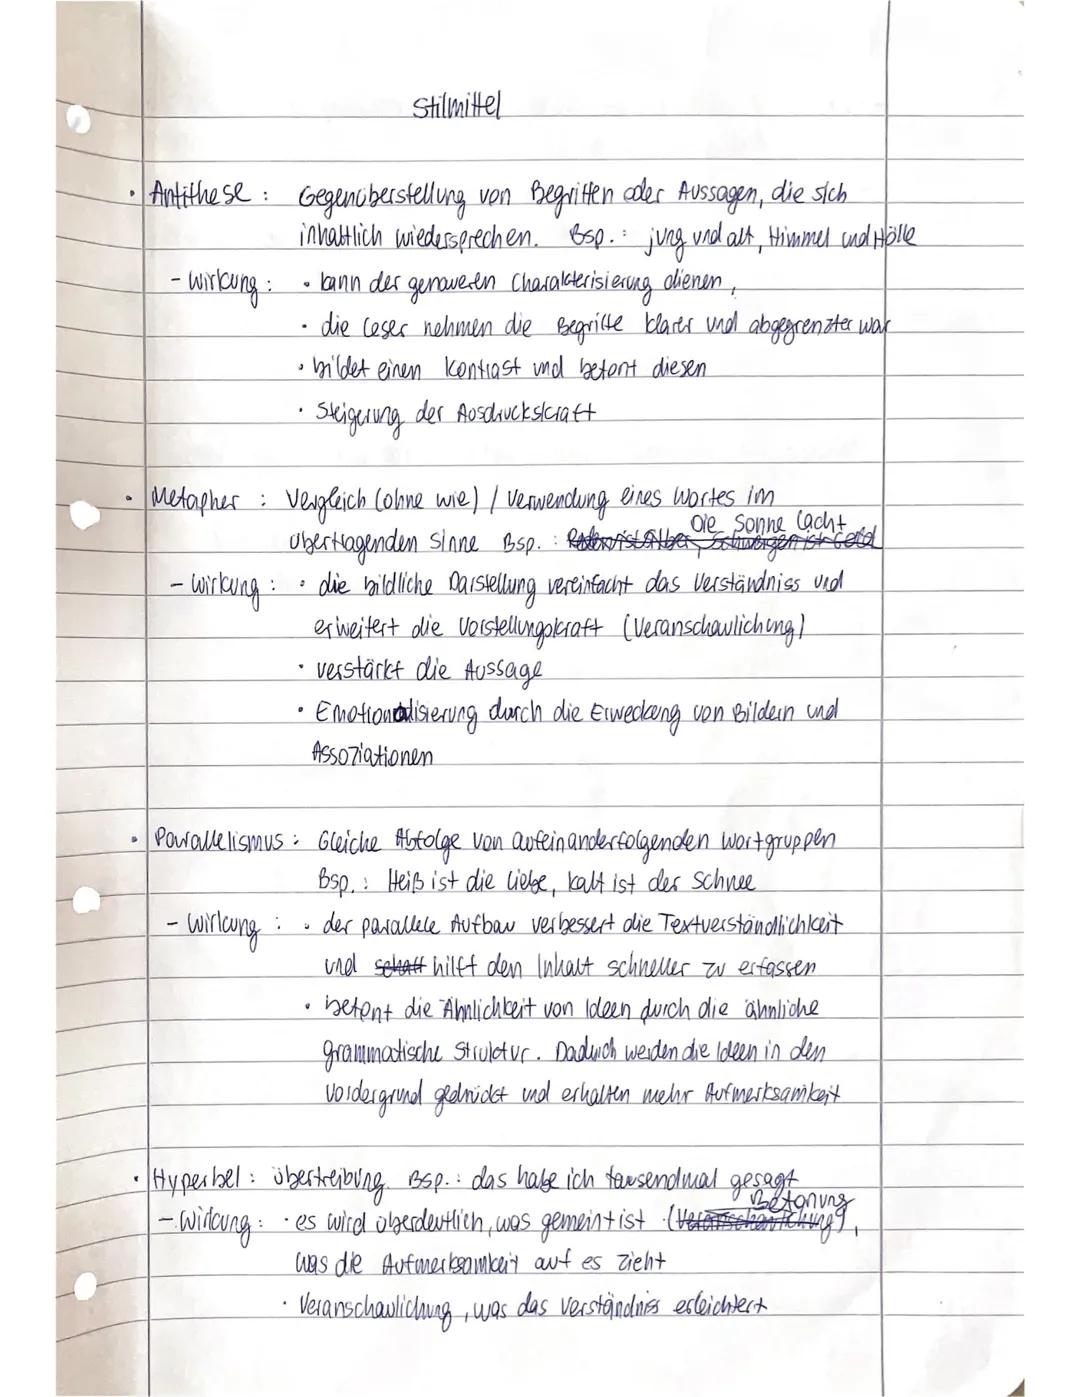 Stilmittel
• Antithese : Gegenüberstellung von Begriffen oder Aussagen, die sich
inhaltlich wiedersprechen. Bsp. : jung und alt, Himmel und Hölle
- Wirkung : • kann der genaueren Charakterisierung dienen,
• die Leser nehmen die Begriffe klarer und abgegrenzter war
• bildet einen Kontrast und betont diesen
• Steigerung der Ausdruckskraft
• Metapher : Vergleich (ohne wie) / Verwendung eines Wortes im
Die Sonne lacht
übertragenden Sinne Bsp. : Reden ist Silber, Schweigen ist Gold
- Wirkung : • die bildliche Darstellung vereinfacht das Verständniss und
erweitert die Vorstellungskraft (Veranschaulichung)
• verstärkt die Aussage
• Emotionalisierung durch die Erweckung von Bildern und
Assoziationen
• Parallelismus : Gleiche Abfolge von aufeinanderfolgenden Wortgruppen
Bsp. : Heiß ist die Liebe, kalt ist der Schnee
- Wirkung : • der parallele Aufbau verbessert die Textverständlichkeit
und schafft hilft den Inhalt schneller zu erfassen
• betont die Ähnlichkeit von Ideen durch die ähnliche
grammatische Struktur. Dadurch werden die Ideen in den
Vordergrund gedrückt und erhalten mehr Aufmerksamkeit
• Hyperbel : Übertreibung. Bsp. : das habe ich tausendmal gesagt
Betonung
- Wirkung : • es wird überdeutlich, was gemeint ist (Veranschaulichung),
was die Aufmerksamkeit auf es zieht
• Veranschaulichung, was das Verständnis erleichtert